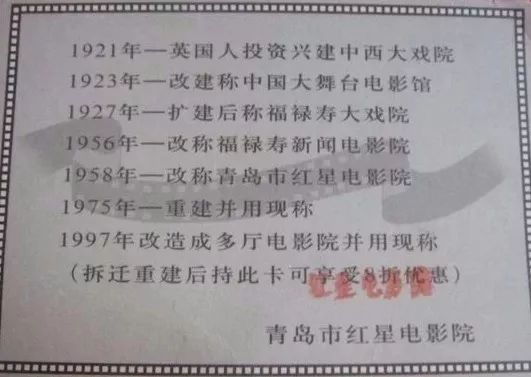 1921年—英国人投资兴建中西大戏院
1923年—改建称中国大舞台电影馆
1927年—扩建后称福禄寿大戏院
1956年—改称福禄寿新闻电影院
1958年—改称青岛市红星电影院
1975年—重建并用现称
1997年改造成多厅电影院并用现称
(拆迁重建后持此卡可享受8折优惠)
红星电影院
青岛市红星电影院